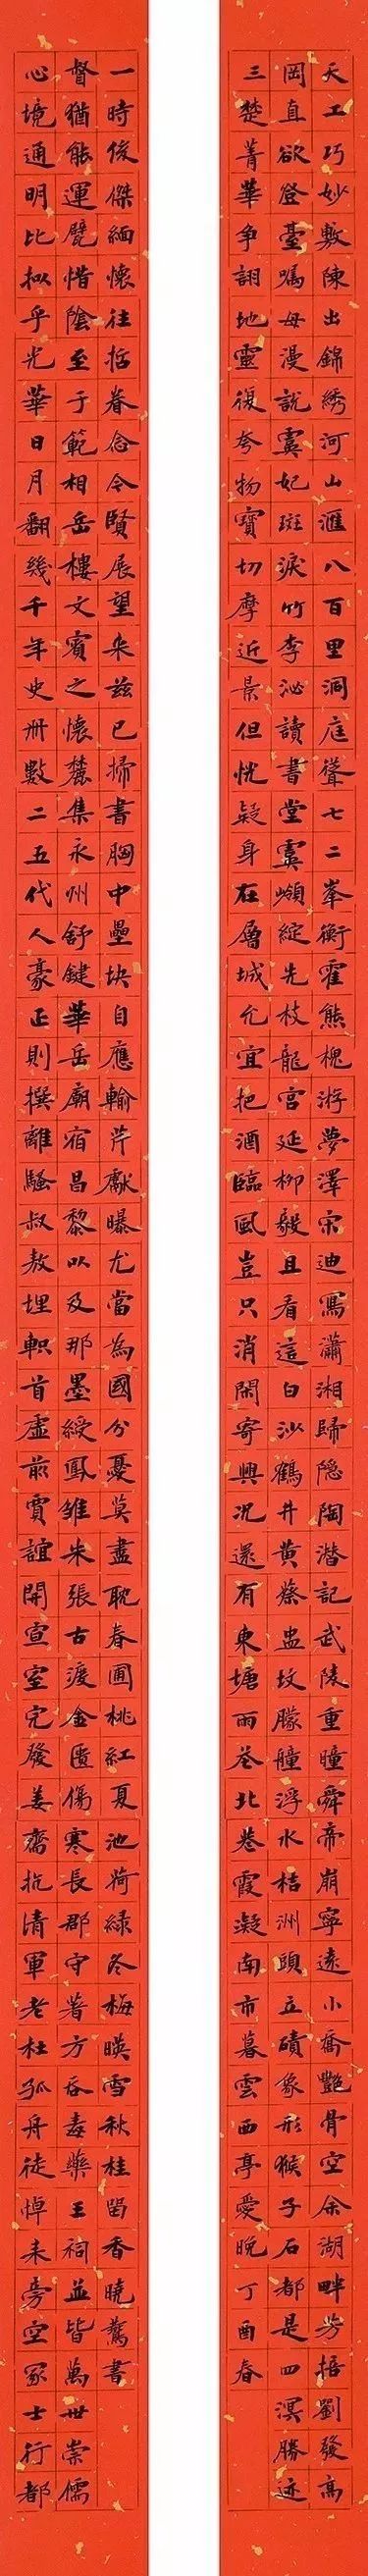 天工巧妙敷陳出錦綉河山滙八百里洞庭聳七二峯衡霍熊槐游夢澤宋迪寫瀟湘歸隐陶潜記武陵重瞳舜帝崩寧遠小喬艷骨空余湖畔芳梧劉發高
岡直欲登臺嘱毋漫說虞妃斑淚竹李沁讀書堂雲嶺綻先枝龍宫延柳毅且看這白沙鶴井黄蔡盅坟朦艟浮水桔洲頭立磧象形猴子石都是四溟勝迹
三楚菁華争詡地靈復夸物寳切摩近景但恍疑身在層城允宜把酒臨風豈只消閑寄興况還有東塘雨苍北巷霞凝南市暮雲西亭愛晚丁酉春
心境通明比拟乎光華日月翻幾千年史册數二五代人豪正則撰離騷叔敖埋軹首虚前賈誼開宣室完發姜齋抗清軍老杜孤舟徒悼耒旁空冢士行都
督猶能運甓惜陰至于範相岳樓文賓之懷麓集永州舒鍵華岳廟宿昌黎以及那墨綬鳳雏朱張古渡金匱傷寒長郡守著方吞毒藥王祠並皆萬世崇儒
一時俊傑緬懷往括眷念今賢展望来兹已掃書胸中壘块自應輸芹獻曝尤當為國分憂莫盡耽春圃桃紅夏池荷緑冬梅暎雪秋桂留香曉鶩書